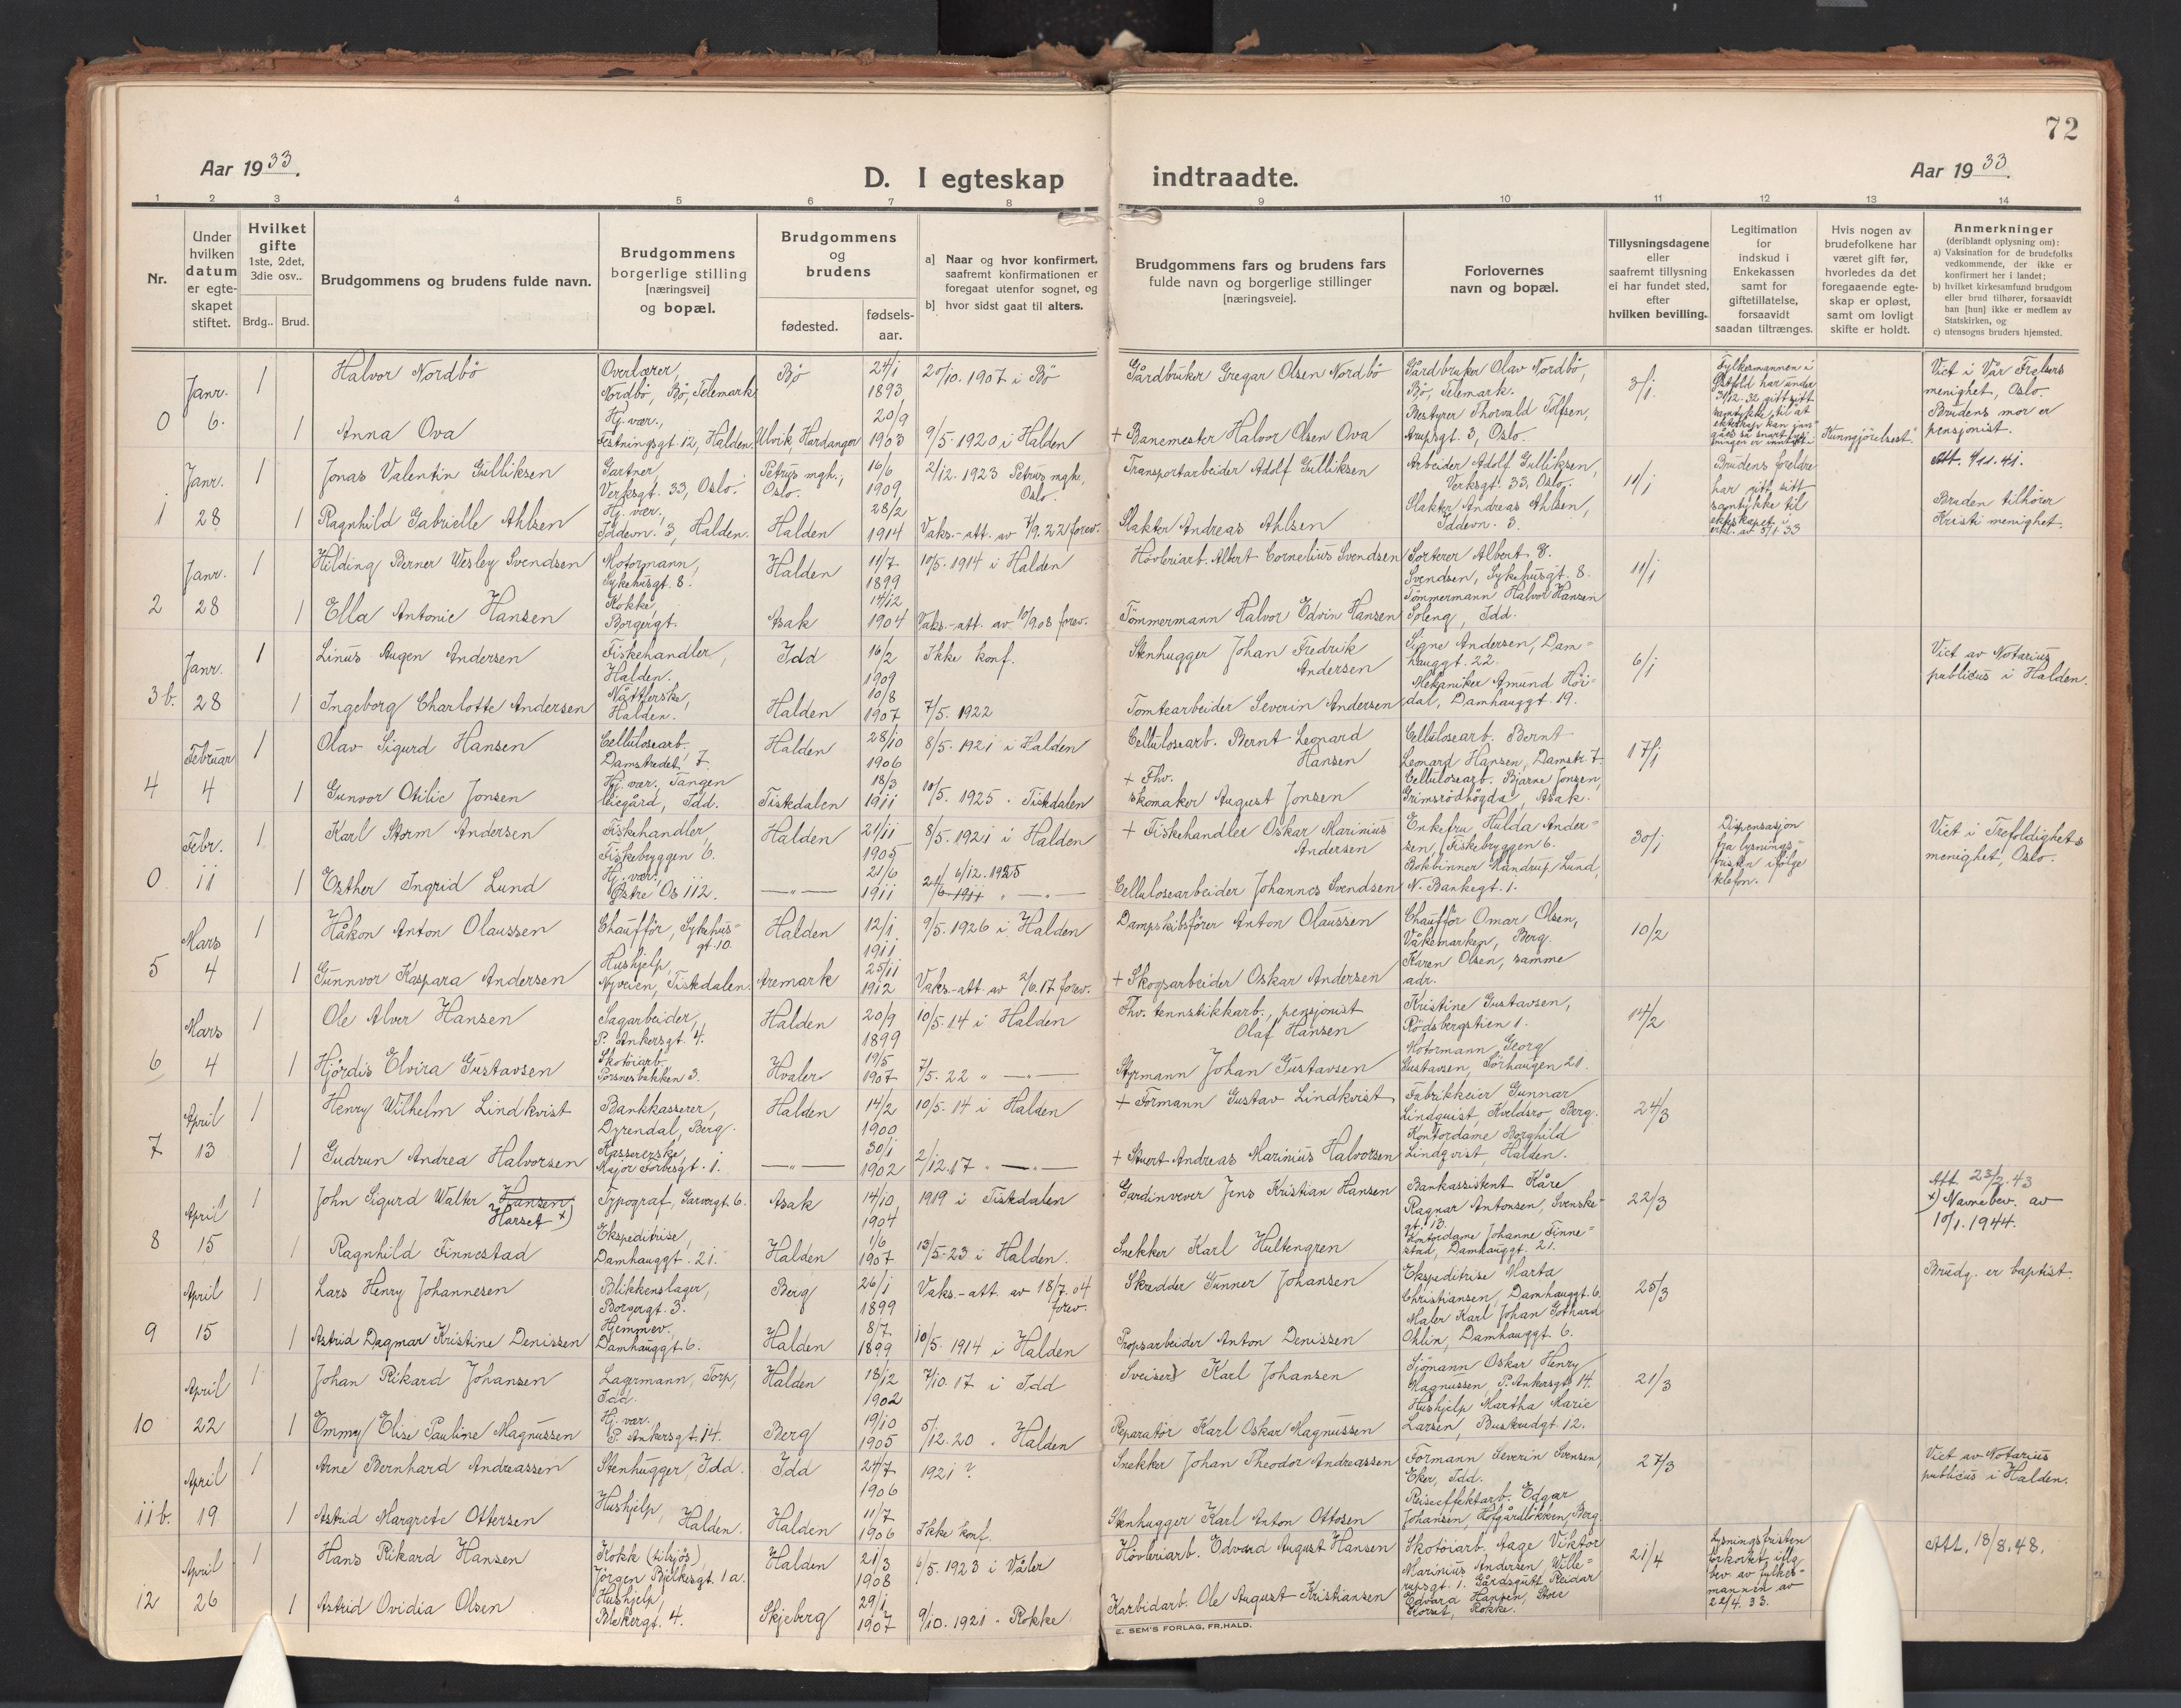 72
Aar 1933.
D. I egteskap indtraadte.
Aar 1933.
1 2 3 4 5 6 7 8 9 10 11 12 13 14
Nr.
Under hvilken datum er egte-skapet stiftet.
Hvilket gifte 1ste, 2det, 3die osv..
Brdg.. Brud.
Brudgommens og brudens fulde navn.
Brudgommens borgerlige stilling [næringsvei] og bopæl.
Brudgommens og brudens
fødested.
fødsels-aar.
a] Naar og hvor konfirmert, saafremt konfirmationen er foregaat utenfor sognet, og
b] hvor sidst gaat til alters.
Brudgommens fars og brudens fars fulde navn og borgerlige stillinger [næringsveie].
Forlovernes navn og bopæl.
Tillysningsdagene eller saafremt tillysning ei har fundet sted, efter hvilken bevilling.
Legitimation for indskud i Enkekassen samt for giftetillatelse, forsaavidt saadan tiltrænges.
Hvis nogen av brudefolkene har været gift før, hvorledes da det foregaaende egte-skap er opløst, samt om lovligt skifte er holdt.
Anmerkninger
(deriblandt oplysning om):
a) Vaksination for de brudefolks vedkommende, der ikke er konfirmert her i landet;
b) hvilket kirkesamfund brudgom eller brud tilhører, forsaavidt han [hun] ikke er medlem av Statskirken, og
c) utensogns bruders hjemsted.
0 Janr. 6. 1 Halvor Nordbö Overlærer, Nordbö, Bö, Telemark Bö 24/1 1893 20/10. 1907 i Bö Gårdbruker Gregar Olsen Nordbö Gårdbruker Olav Nordbö, Bö, Telemark. 3/1 Fylkesmannen i Østfold har under 31/12.32 gitt sitt samtykke til at ekteskap kan inngåes så snart lysningen er inntatt i "Kunngjörelsest." Viet i Vår Frelsers menighet, Oslo. Brudens mor er pensjonist.
1 Anna Ova Hj. vær., Festningsgt. 12, Halden. Ulvik, Hardanger 20/9 1903 9/5. 1920 i Halden + Banemester Halvor Olsen Ova Bestyrer Thorvald Tolfsen, Arupsgt. 3, Oslo.
1 Janr. 28 1 Jonas Valentin Gulliksen Gartner, Verksgt. 33, Oslo. Petrus mgh., Oslo. 16/6 1909 2/12. 1923 Petrus mgh., Oslo. Transportarbeider Adolf Gulliksen Arbeider Adolf Gulliksen, Verksgt. 33, Oslo. 11/1 Brudens foreldre har gitt sitt samtykke til ekteskapet i erkl. av 5/1 33 Att. 4/11.41.
1 Ragnhild Gabrielle Ahlsen Hj. vær., Iddevn. 3, Halden. Halden 28/2 1914 Vaks.-att. av 7/9.22 forev. Slakter Andreas Ahlsen Slakter Andreas Ahlsen, Iddevn. 3. Bruden tilhører Kristi menighet.
2 Janr. 28 1 Hilding Berner Wesley Svendsen Motormann, Sykehusgt. 8. Halden 11/7 1899 10/5. 1914 i Halden Hövleriarb. Albert Cornelius Svendsen Sorterer Albert E. Svendsen, Sykehusgt. 8. 11/1
1 Ella Antonie Hansen Kokke, Borgergt. Asak 14/12 1904 Vaks.-att. av 10/9.08 forev. Tömmermann Halvor Edvin Hansen Tömmermann Halvor Hansen Soleng, Idd.
3b. Janr. 28 1 Linus Augen Andersen Fiskehandler, Halden. Idd 16/2 1909 Ikke konf. Stenhugger Johan Fredrik Andersen Signe Andersen, Damhauggt. 22. 6/1 Viet av Notarius publicus i Halden.
1 Ingeborg Charlotte Andersen Nåtlerske, Halden. Halden 10/8 1907 7/5. 1922 Tomtearbeider Severin Andersen Mekaniker Amund Höidal, Damhauggt. 19.
4 Februar 4 1 Olav Sigurd Hansen Cellulosearb., Damstredet 7. Halden 28/10 1906 8/5. 1921 i Halden Cellulosearb. Bernt Leonard Hansen Cellulosearb. Bernt Leonard Hansen, Damstr. 7. 17/1
1 Gunvor Otilie Jonsen Hj. vær. Tangen leiegård, Idd. Tistedalen 18/3 1911 10/5. 1925 . Tistedalen + Fhv. skomaker August Jonsen Cellulosearb. Bjarne Jonsen, Grimsrödhögda, Asak.
0 Febr. 11 1 Karl Storm Andersen Fiskehandler, Fiskebryggen 6. Halden 21/11 1905 8/5. 1921 i Halden + Fiskehandler Oskar Marinius Andersen Enkefru Hulda Andersen, Fiskebryggen 6. 30/1 Dispensasjon fra lysningsfristen ifölge telefon. Viet i Trefoldighets menighet, Oslo.
1 Esther Ingrid Lund Hj. vær., Østre Os 112. —"— 21/6 1911 6/12. 1925 " —"— Cellulosearbeider Johannes Svendsen Bokbinner Mandrup Lund, N. Bankegt. 1.
5 Mars 4 1 Håkon Anton Olaussen Chauffør, Sykehusgt. 10. Halden 12/1 1911 9/5. 1926 i Halden Dampskibsförer Anton Olaussen Chauffør Omar Olsen, Våkemarken, Berg. 10/2
1 Gunnvor Kaspara Andersen Hushjelp, Nyveien, Tistedalen. Aremark 25/11 1912 Vaks.-att. av 2/6.17 forev. + Skogsarbeider Oskar Andersen Karen Olsen, samme adr.
6 Mars 4 1 Ole Alver Hansen Sagarbeider, P. Ankersgt. 4. Halden 20/9 1899 10/5.14 i Halden Fhv. tennstikkarb., pensjonist Olaf Hansen Kristine Gustavsen, Rödsbergstien 1. 14/2
1 Hjördis Elvira Gustavsen Skotöiarb. Porsnesbakken 3. Hvaler 19/5 1907 7/5. 22 " —"— Styrmann Johan Gustavsen Motormann Georg Gustavsen, Sörhaugen 21.
7 April 13 1 Henry Wilhelm Lindkvist Bankkasserer, Dyrendal, Berg. Halden 14/2 1900 10/5. 14 i Halden + Formann Gustav Lindkvist Fabrikkeier Gunnar Lindquist, Kveldsro, Berg. 24/3
1 Gudrun Andrea Halvorsen Kassererske, Major Forbesgt. 1. —"— 30/1 1902 2/12.17 " —"— + Stuert Andreas Marinius Halvorsen Kontordame Borghild Lindqvist, Halden.
8 April 15 1 John Sigurd Walter Hansen Harset x) Typograf, Garvergt. 6. Asak 14/10 1904 1919 i Tistedalen Gardinvever Jens Kristian Hansen Bankassistent Kåre Ragnar Antonsen, Svenskegt. 13. 22/3 Att. 23/2.43 x) Navnebev. av 10/1.1944.
1 Ragnhild Finnestad Ekspeditrise, Damhauggt. 21. Halden 1/6 1907 13/5-23 i Halden. Snekker Karl Hultengren Kontordame Johanne Finnestad, Damhauggt. 21.
9 April 15 1 Lars Henry Johannesen Blikkenslager, Borgergt. 3. Berg 26/1 1899 Vaks.-att. av 18/7.04 forev. Skredder Gunner Johansen Ekspeditrise Marta Christiansen, Damhauggt. 6. 25/3 Brudg. er baptist.
1 Astrid Dagmar Kristine Denissen Hjemmev. Damhauggt. 6. Halden 8/7 1899 10/5. 1914 i Halden Propsarbeider Anton Denissen Maler Karl Johan Gothard Ohlin, Damhauggt. 6.
10 April 22 1 Johan Rikard Johansen Lagermann, Torp, Idd. Halden 18/12 1902 7/10. 17 i Idd Sveiser Karl Johansen Sjömann Oskar Henry Magnussen, P. Ankersgt. 14. 21/3
1 Emmy Elise Pauline Magnussen Hj. vær. P. Ankersgt. 14. Berg 19/10 1905 5/12.20 . Halden Reparatör Karl Oskar Magnussen Hushjelp Martha Marie Larsen, Buskrudgt. 12.
11b. April 19 1 Arne Bernhard Andreassen Stenhugger, Idd. Idd 24/7 1906 1921 ? Snekker Johan Theodor Andreassen Formann Severin Svensen, Eker, Idd. 27/3 Viet av Notarius publicus i Halden.
1 Astrid Margrete Ottersen Hushjelp, Halden. Halden 11/7 1906 Ikke konf. Stenhugger Karl Anton Ottosen Reiseeffektarb. Edgar Johansen, Hofgårdlökken, Berg
12 April 26 1 Hans Rikard Hansen Kokk (tilsjös), Jörgen Bjelkesgt. 1a. Halden 21/3 1908 6/5. 1923 i Våler Hövleriarb. Edvard August Hansen Skotöiarb. Aage Viktor Marinius Andersen, Willerupsgt. 1. 21/4 Lysningsfristen forkortet iflg. bev. av fylkesmannen av 22/4.33. Att. 18/8.48.
1 Astrid Ovidia Olsen Hushjelp, Blekergt. 4. Skjeberg 29/1 1907 9/10. 1921 . Rokke Karbidarb. Ole August Kristiansen Gårdsgutt Reidar Edvard Hansen, Store Korset, Rokke.
E. SEM'S FORLAG, FR.HALD.